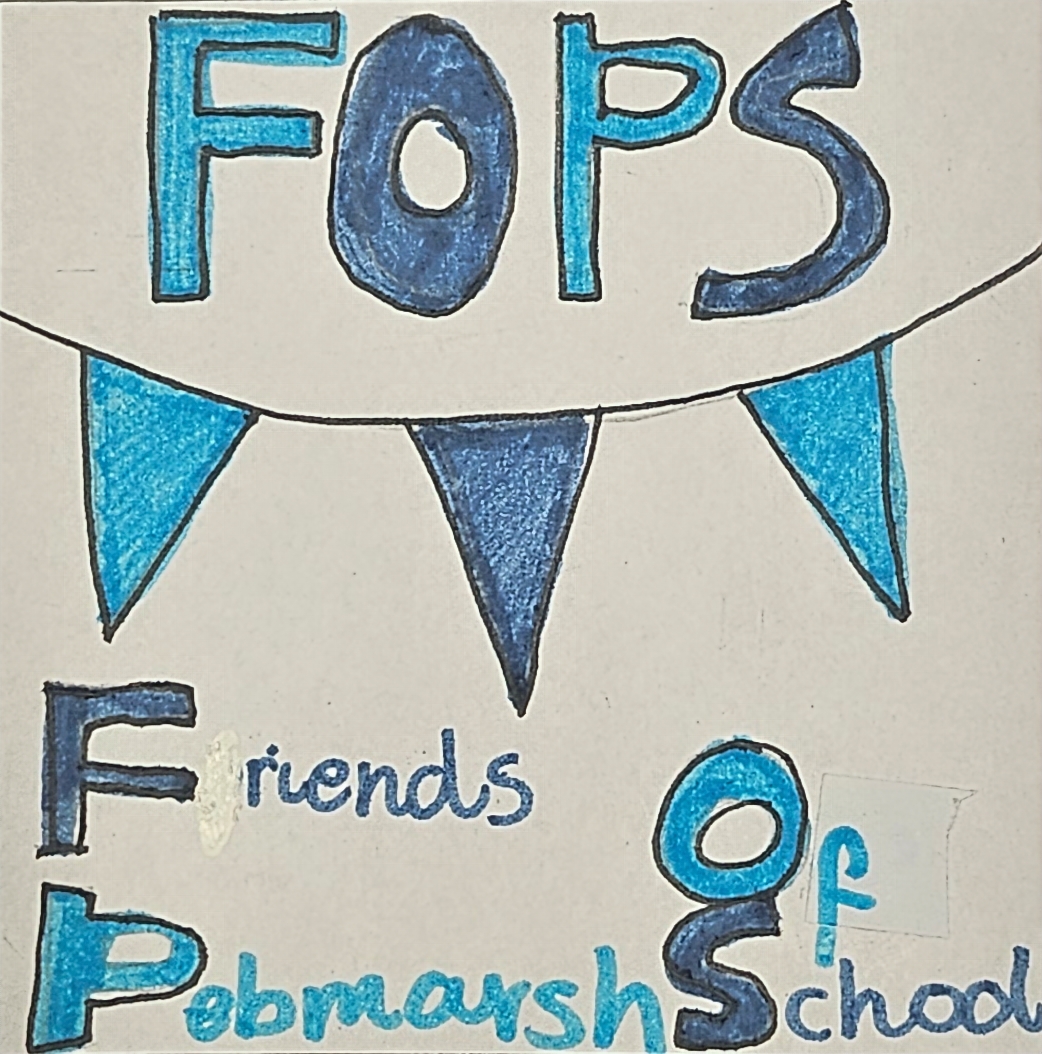 FOPS
Friends Of
Pebmarsh School